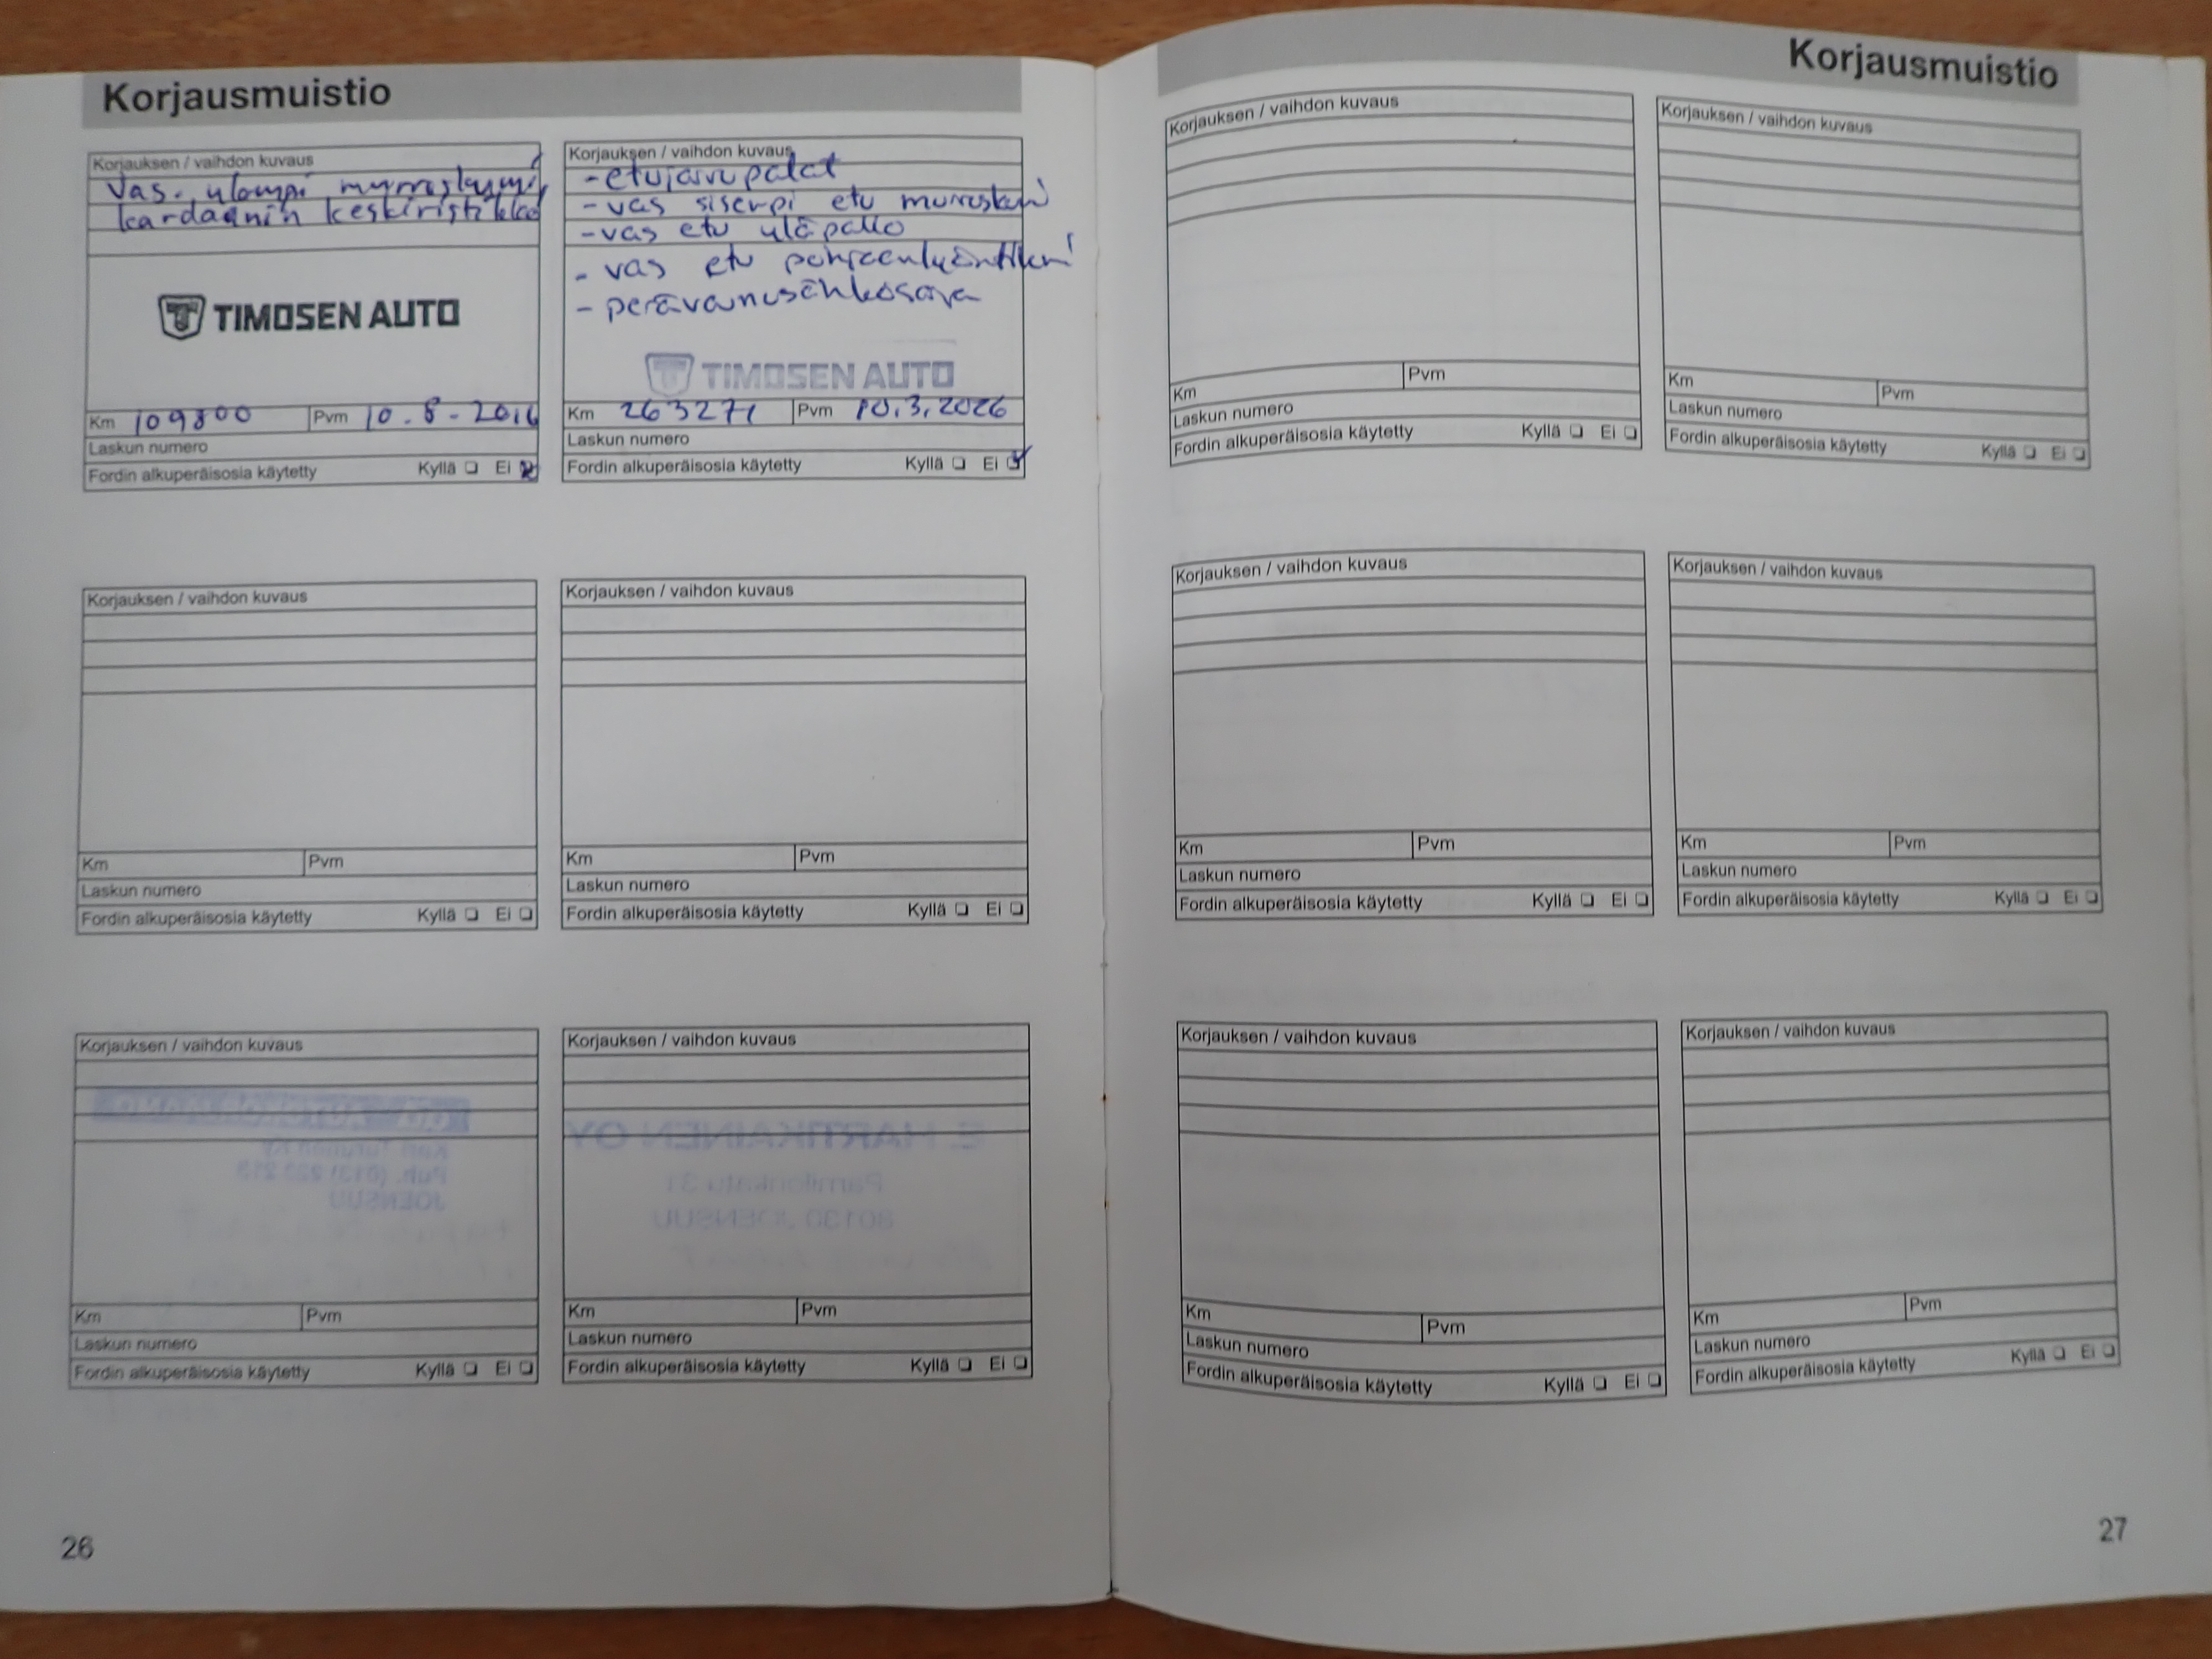 Korjausmuistio
Korjauksen / vaihdon kuvaus
vas. ulompi murroskumi,
kardaanin keskiristikko
TIMOSEN AUTO
Km 109800 Pvm 10.8-2016
Laskun numero
Fordin alkuperäisosia käytetty Kyllä Ei
Korjauksen / vaihdon kuvaus
- etujarrupalat
- vas sisempi etu murroskumi
- vas etu yläpallo
- vas etu pohjaanlyöntikumi
- perävaunusähkösarja
TIMOSEN AUTO
Km 263271 Pvm 10.3.2026
Laskun numero
Fordin alkuperäisosia käytetty Kyllä Ei
Korjauksen / vaihdon kuvaus
Km Pvm
Laskun numero
Fordin alkuperäisosia käytetty Kyllä Ei
Korjauksen / vaihdon kuvaus
Km Pvm
Laskun numero
Fordin alkuperäisosia käytetty Kyllä Ei
Korjauksen / vaihdon kuvaus
Km Pvm
Laskun numero
Fordin alkuperäisosia käytetty Kyllä Ei
Korjauksen / vaihdon kuvaus
E. HARTIKAINEN OY
Pamilonkatu 31
80130 JOENSUU
Km Pvm
Laskun numero
Fordin alkuperäisosia käytetty Kyllä Ei
26
Korjausmuistio
Korjauksen / vaihdon kuvaus
Km Pvm
Laskun numero
Fordin alkuperäisosia käytetty Kyllä Ei
Korjauksen / vaihdon kuvaus
Km Pvm
Laskun numero
Fordin alkuperäisosia käytetty Kyllä Ei
Korjauksen / vaihdon kuvaus
Km Pvm
Laskun numero
Fordin alkuperäisosia käytetty Kyllä Ei
Korjauksen / vaihdon kuvaus
Km Pvm
Laskun numero
Fordin alkuperäisosia käytetty Kyllä Ei
Korjauksen / vaihdon kuvaus
Km Pvm
Laskun numero
Fordin alkuperäisosia käytetty Kyllä Ei
Korjauksen / vaihdon kuvaus
Km Pvm
Laskun numero
Fordin alkuperäisosia käytetty Kyllä Ei
27